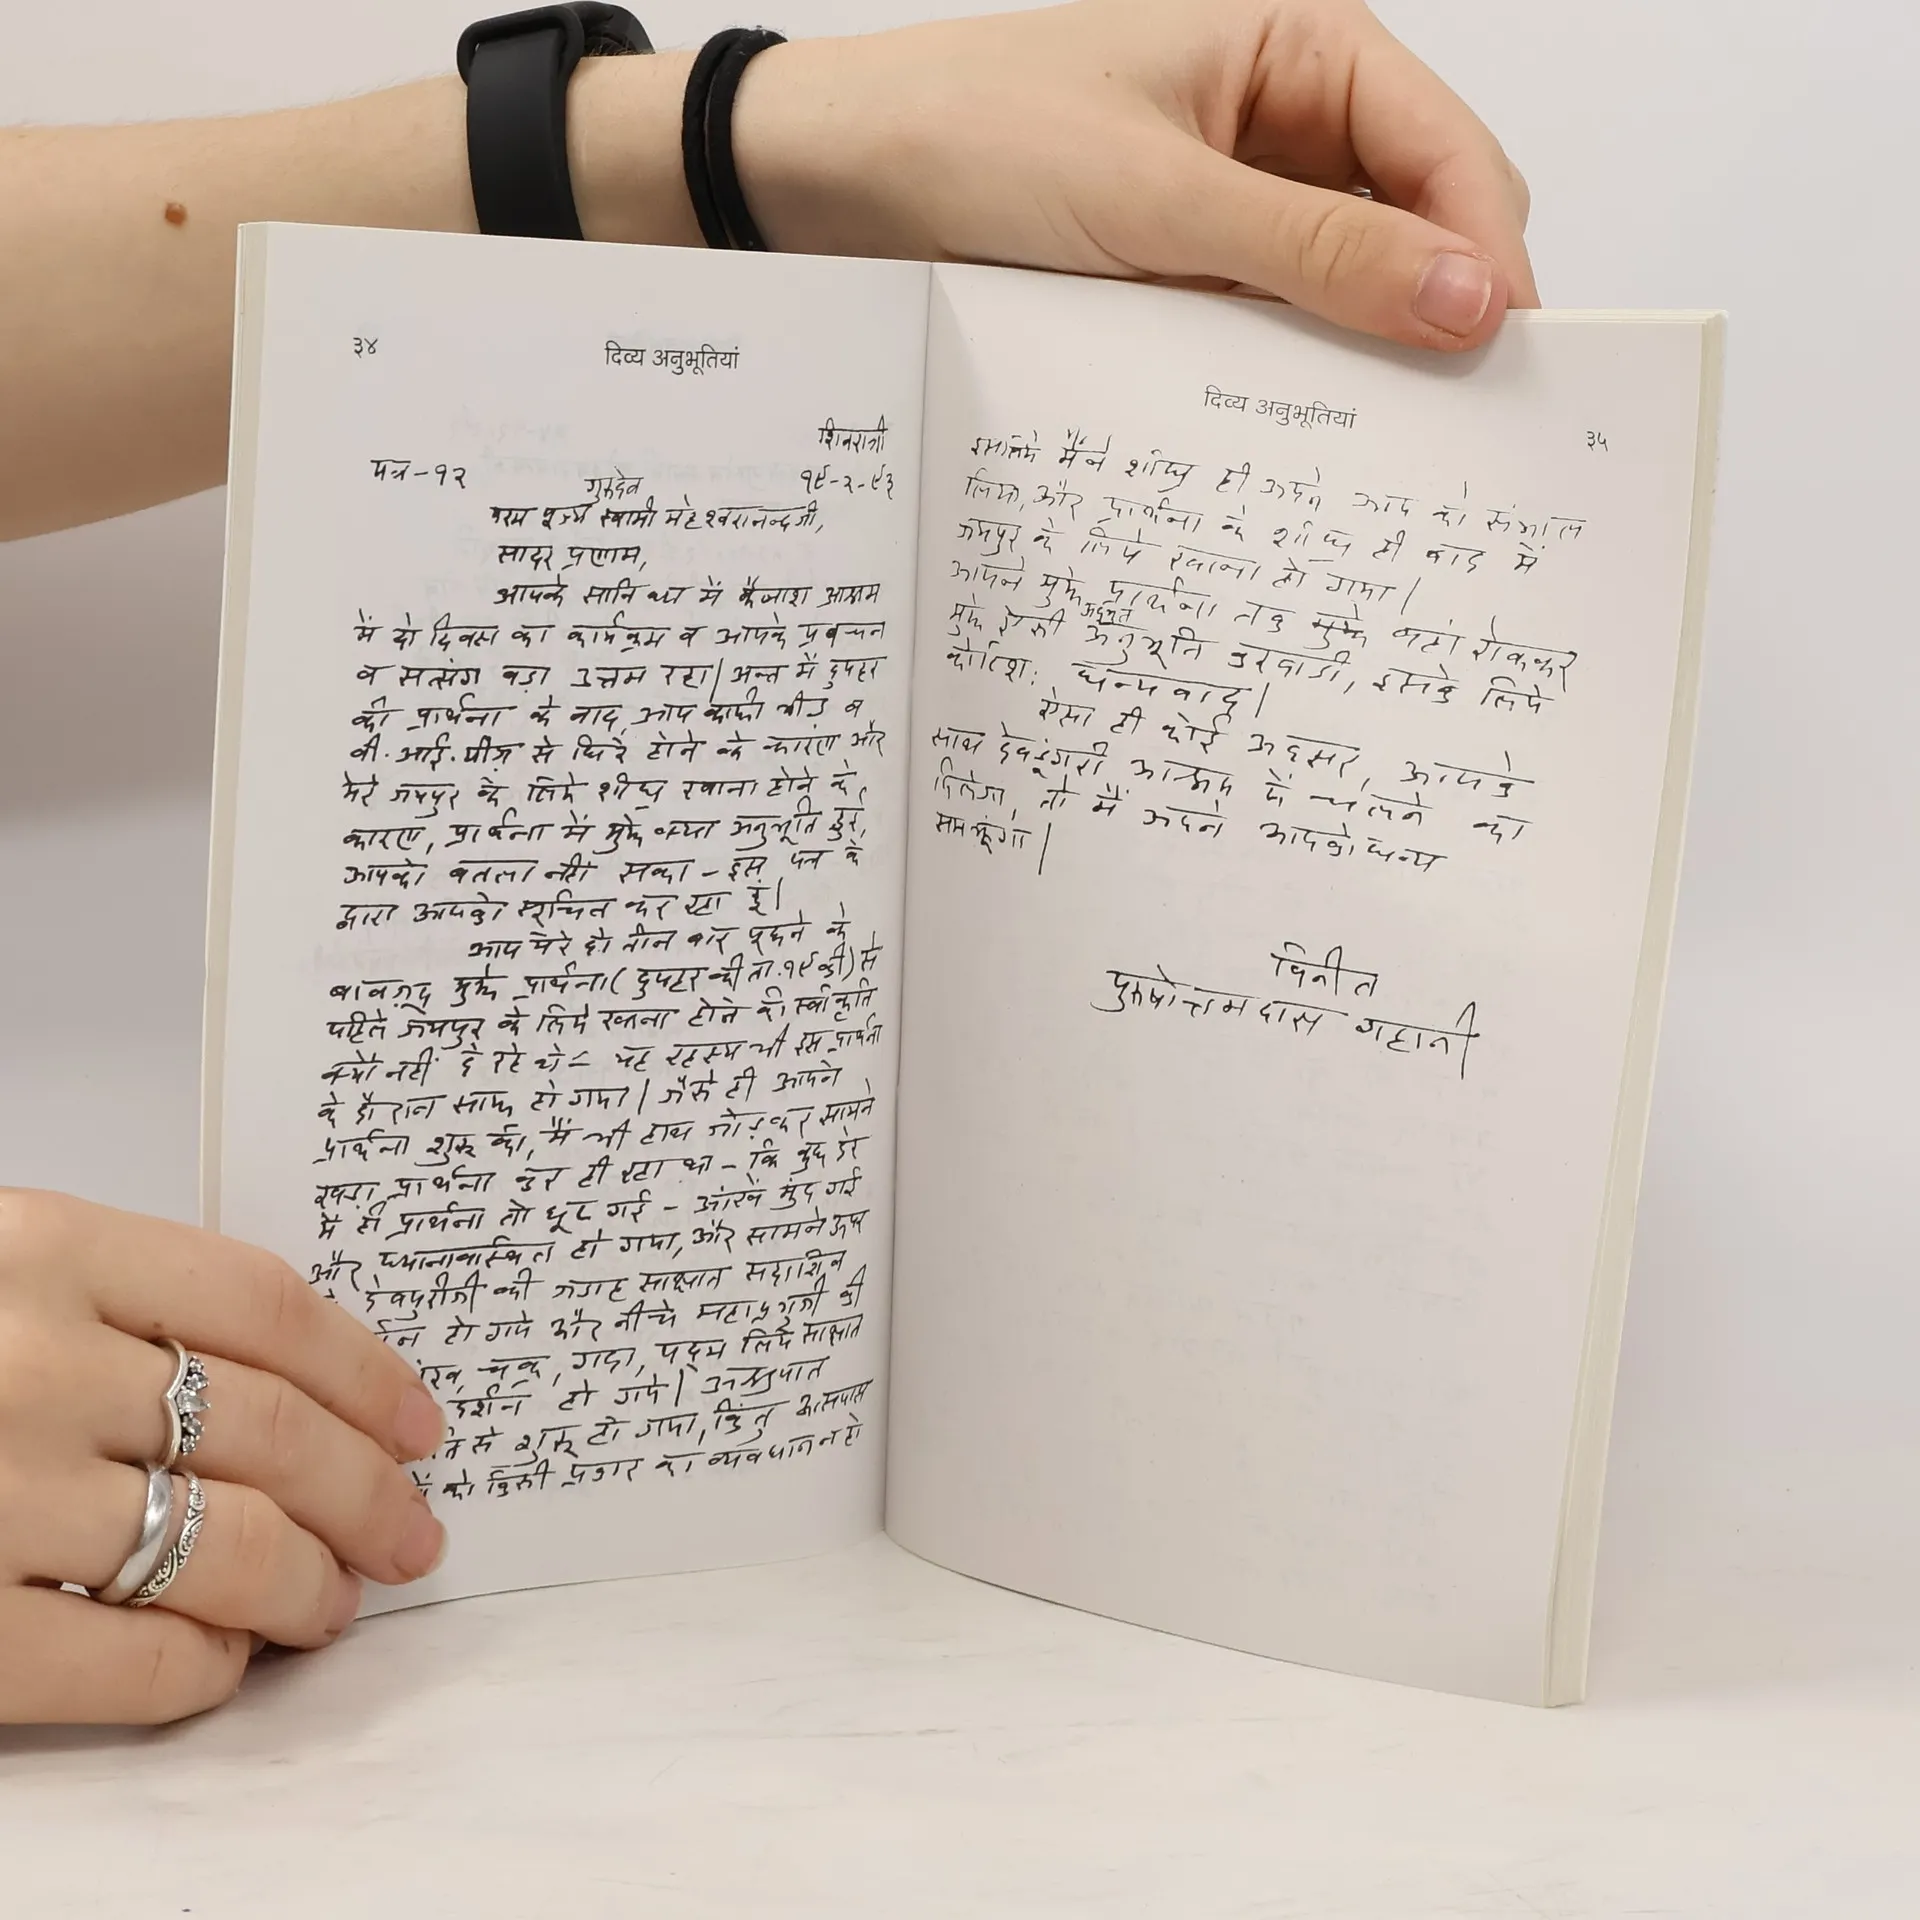 ३४
दिव्य अनुभूतियां
शिवरात्री
पत्र-१२
१९-२-९३
गुरुदेव
परम पूज्य स्वामी महेश्वरानन्दजी,
सादर प्रणाम,
आपके सानिध्य में कैलाश आश्रम
में दो दिवस का कार्यक्रम व आपके प्रवचन
व सत्संग बड़ा उत्तम रहा| अन्त में दुपहर
की प्रार्थना के बाद, आप काफी भीड़ व
वी.आई.पीज़ से घिरे होने के कारण और
मेरे जयपुर के लिये शीघ्र रवाना होने के,
कारण, प्रार्थना में मुझे क्या अनुभूति हुई,
आपको बतला नहीं सका - इस पत्र के
द्वारा आपको सूचित कर रहा हूं|
आप मेरे दो तीन बार पूछने के
बावजूद मुझे प्रार्थना (दुपहर की ता.१९ की) से
पहिले जयपुर के लिये रवाना होने की स्वीकृति
क्यों नहीं दे रहे थे - यह रहस्य भी इस प्रार्थना
के दौरान साफ हो गया| जैसे ही आपने
प्रार्थना शुरू की, मैं भी हाथ जोड़कर सामने
खड़ा प्रार्थना कर ही रहा था - कि कुछ देर
में ही प्रार्थना तो छूट गई - आंखें मुंद गई
और ध्यानावस्थित हो गया, और सामने ऊपर
देवपुरीजी की जगह साक्षात सदाशिव
हो गये और नीचे महाप्रभुजी की
चक्र, गदा, पद्म लिये साक्षात
दर्शन हो गये| अश्रुपात
से शुरू हो गया, किंतु आसपास
को किसी प्रकार का व्यवधान न हो
दिव्य अनुभूतियां
३५
इसलिये मैंने शीघ्र ही अपने आप को संभाल
लिया, और प्रार्थना के शीघ्र ही बाद में
जयपुर के लिये रवाना हो गया|
आपने मुझे प्रार्थना तक मुझे वहां रोककर
मुझे ऐसी अद्भुत अनुभूति करवाई, इसके लिये
कोटिश: धन्यवाद|
ऐसा ही कोई अवसर, आपके
साथ देवडूंगरी आश्रम में चलने का
मिलेगा, तो मैं अपने आपको धन्य
समझूंगा|
विनीत
पुरुषोत्तमदास गहानी